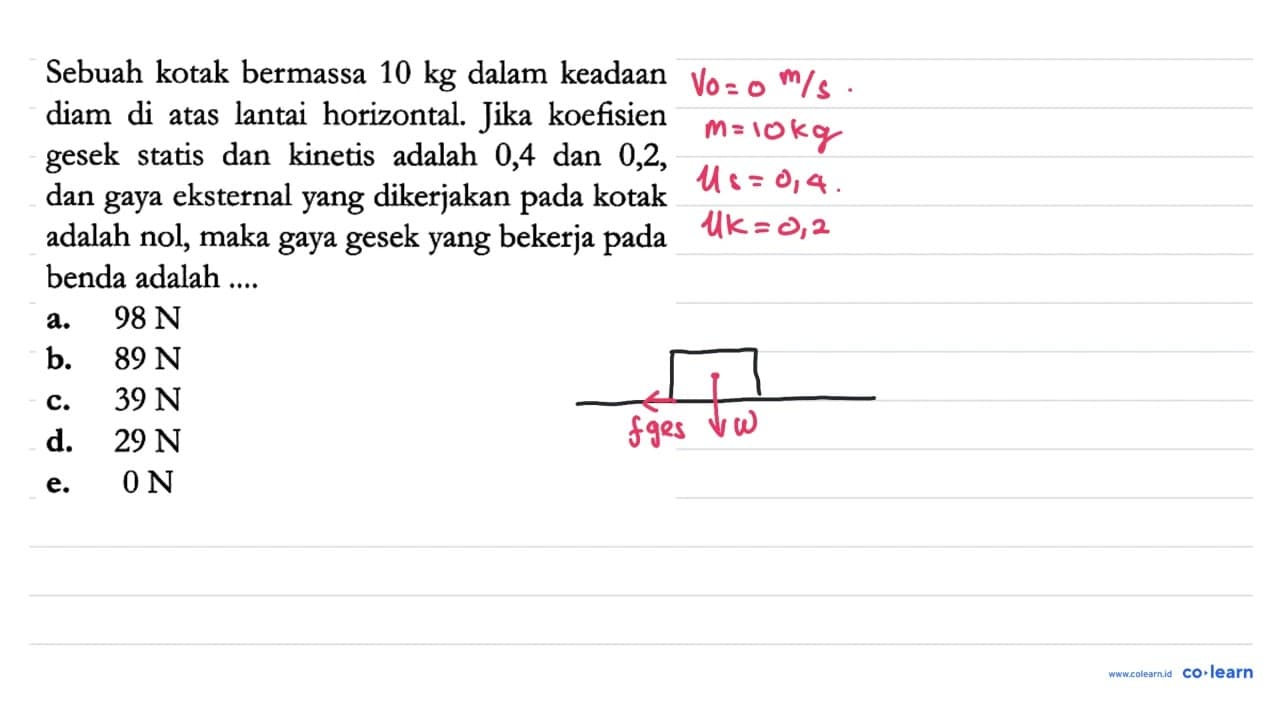 Sebuah kotak bermassa 10 kg dalam keadaan
diam di atas lantai horizontal. Jika koefisien
gesek statis dan kinetis adalah 0,4 dan 0,2,
dan gaya eksternal yang dikerjakan pada kotak
adalah nol, maka gaya gesek yang bekerja pada
benda adalah ....
a. 98 N
b. 89 N
c. 39 N
d. 29 N
e. 0 N
Vo = 0 m/s .
m = 10 kg
Us = 0,4.
Uk = 0,2
fges
w
www.colearn.id
co·learn